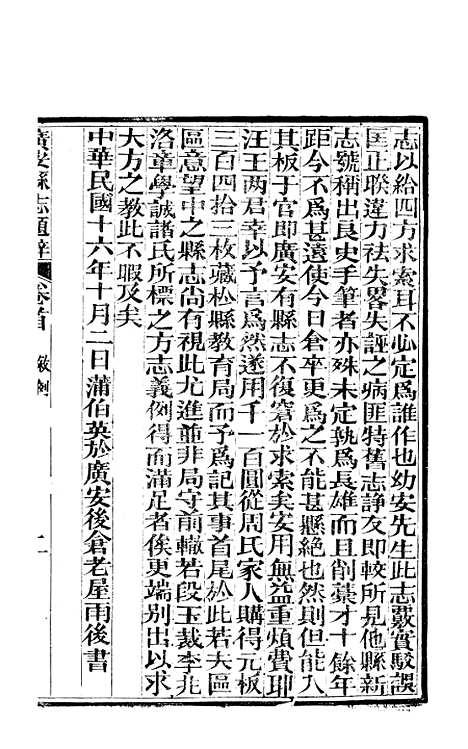 志以給四方求索耳不必定爲誰作也幼安先生此志覈實駁誤
匡止聯違力袪失畧失誣之病匪特舊志諍友即較所見他縣新
志號稱出良史手筆者亦殊未定孰爲長雄而且削藁才十餘年
距今不爲甚遠使今日倉卒更爲之不能甚懸絶也然則但能入
其板于官即廣安有縣志不復窘於求索矣安用無益重煩費琍
汪王两君幸以予言爲然遂用千一百圓從周氏家人購得元板
三百四拾三枚藏松縣教育局而予爲記其事首尾於此若夫區
區意望中之縣志尚有視此尤進並非局守前轍若段玉裁李兆
洛章學誠諸氏所標之方志義例得而滿足者俟更端别出以求
大方之教此不暇及矣
中華民國十六年十月二日蒲伯英於廣安後倉老屋雨後書
廣安縣志 卷首 敘例 二